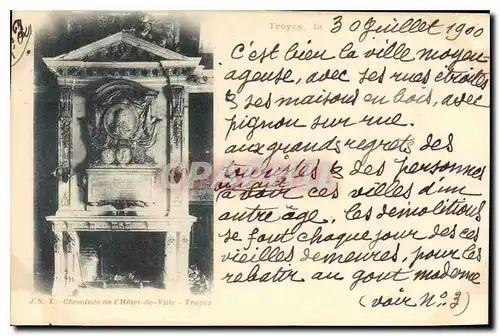 No 2
Troyes, le 30 Juillet 1900
C'est bien la ville moyen
ageuse, avec ses rues étroites
& ses maisons en bois, avec
pignon sur rue.
aux grands regrets des
touristes & des personnes
ayant
à voir ces villes d'un
autre âge, les démolitions
se font chaque jour des ces
vieilles demeures, pour les
rebatir au gout moderne
(voir No. 3)
J. S. T. - Cheminée de l'Hôtel-de-Ville - Troyes